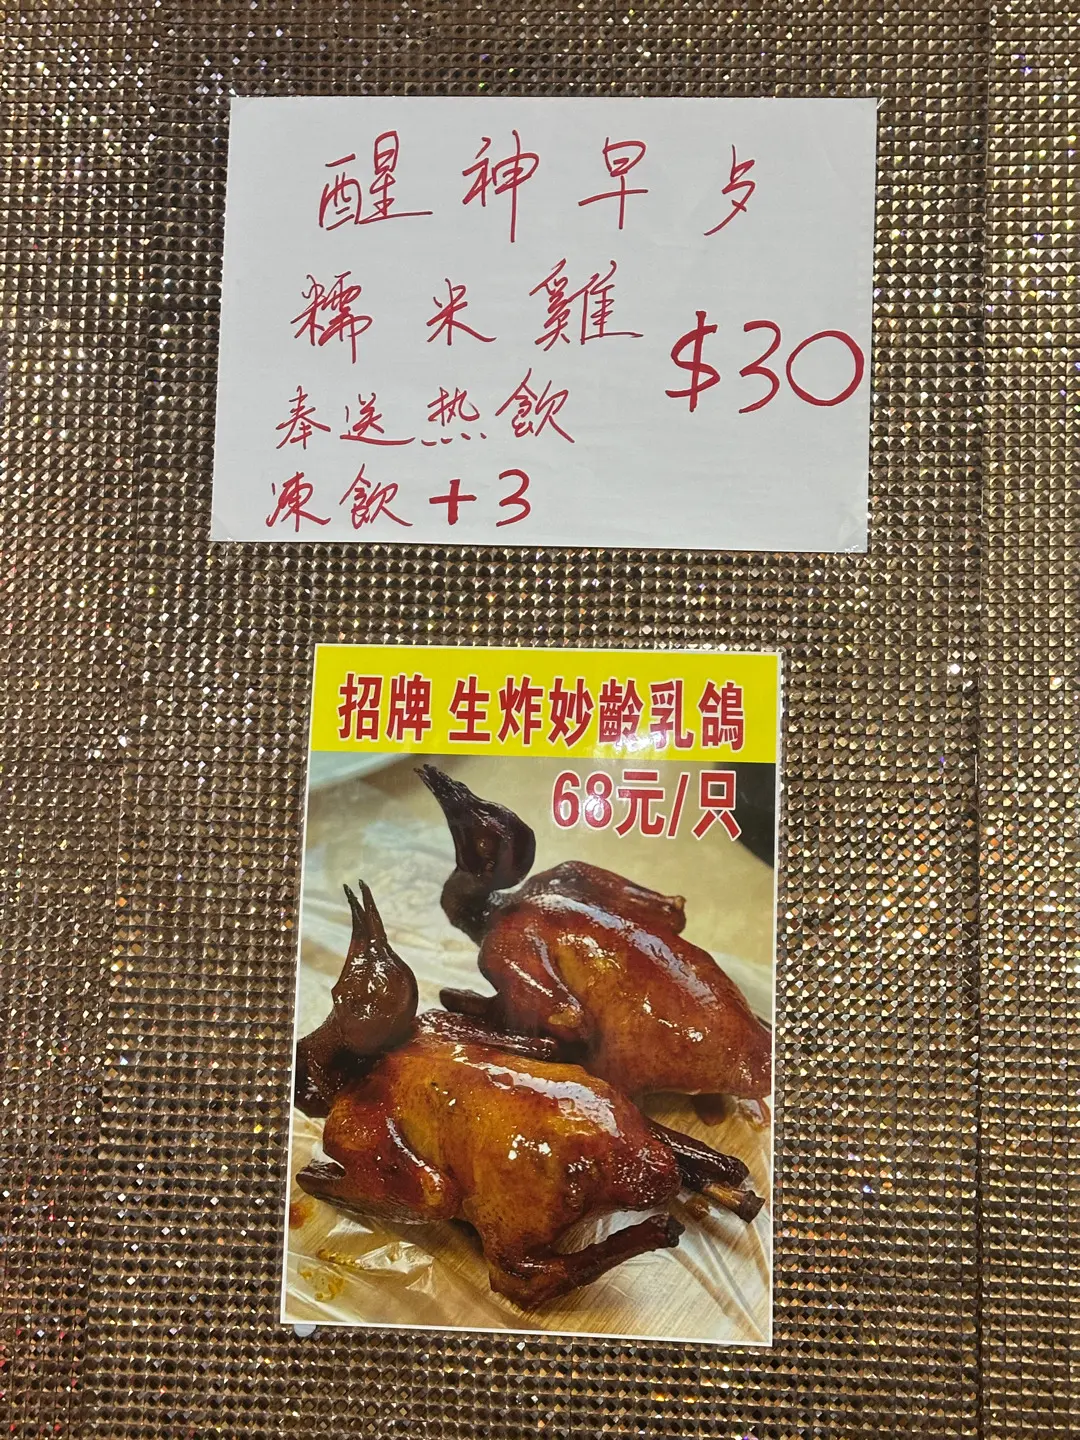 醒神早歺
糯米雞 $30
奉送热飲
凍飲+3
招牌 生炸妙齡乳鴿
68元/只